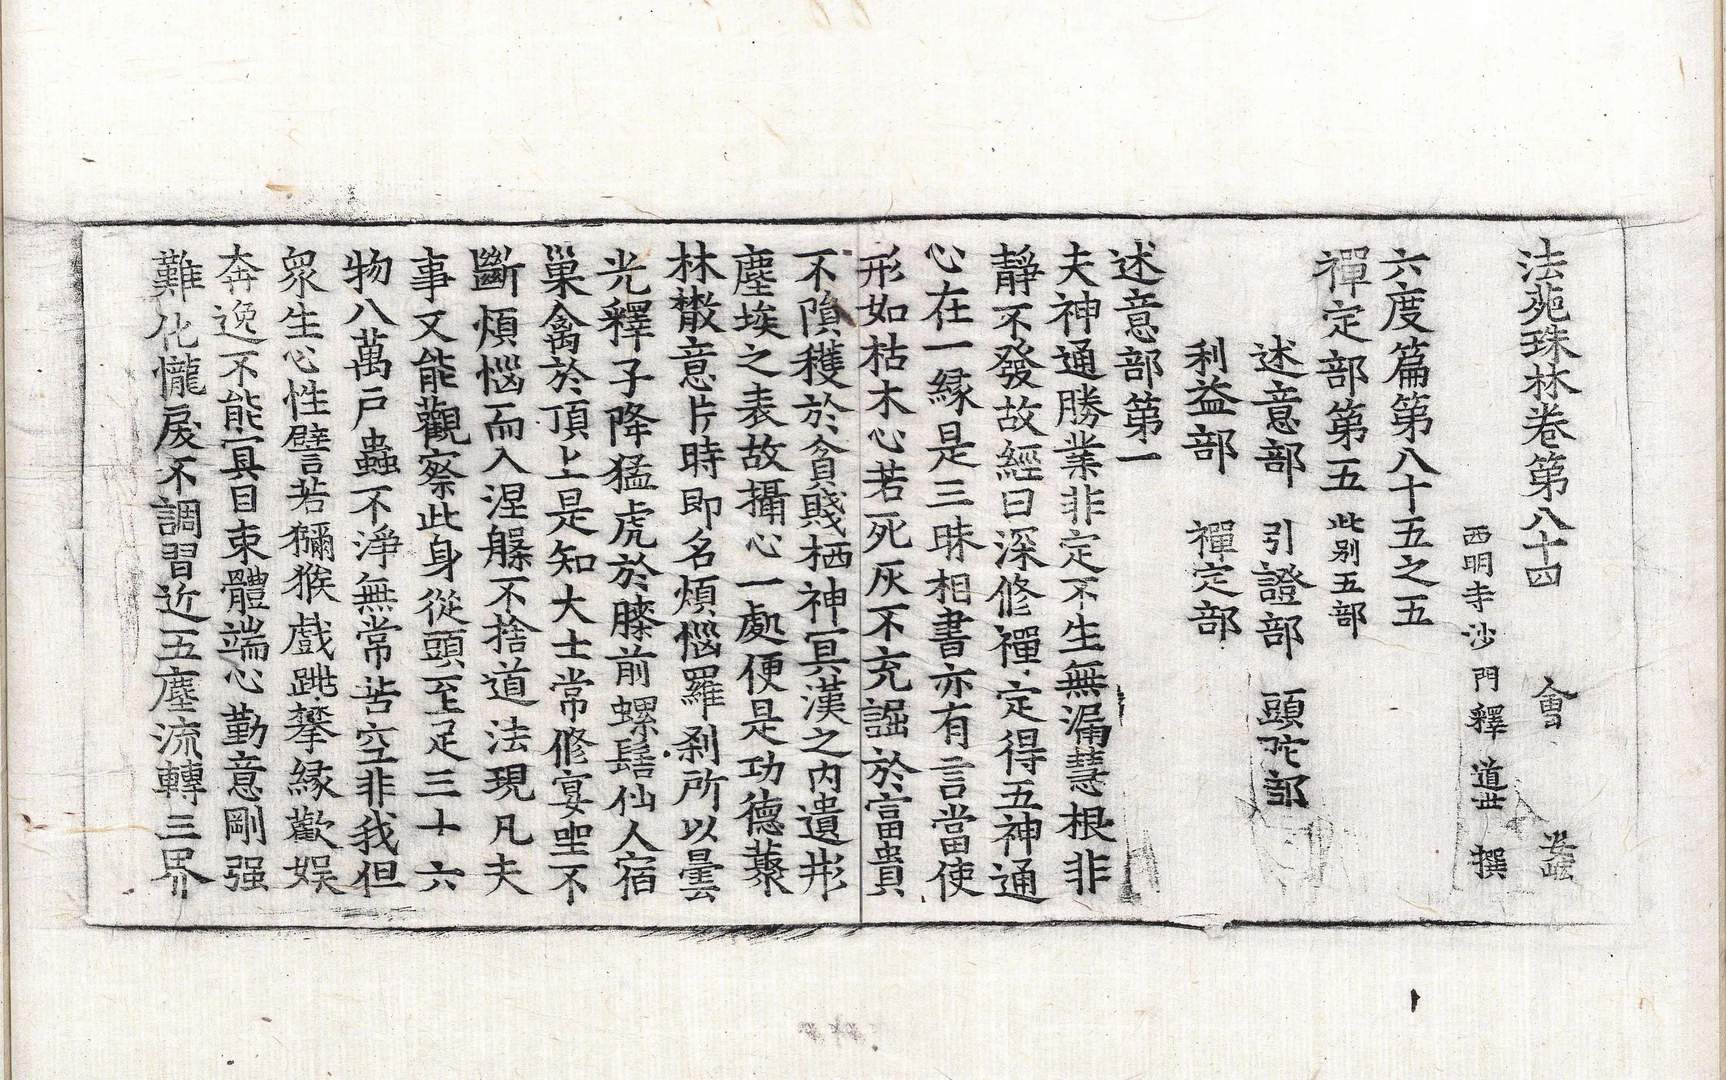 法苑珠林卷第八十四　會
西明寺沙門釋道世撰
六度篇第八十五之五
禪定部第五此别五部
述意部　引證部　頭陀部
利益部　禪定部
述意部第一
夫神通勝業非定不生無漏慧根非
靜不發故經曰深修禪定得五神通
心在一緣是三昧相書亦有言當使
形如枯木心若死灰不充詘於富貴
不隕穫於貧賤栖神冥漠之内遺形
塵埃之表故攝心一處便是功德藂
林散意片時即名煩惱羅刹所以曇
光釋子降猛虎於膝前螺髻仙人宿
巢禽於頂上是知大士常修宴坐不
斷煩惱而入涅槃不捨道法現凡夫
事又能觀察此身從頭至足三十六
物八萬戸蟲不淨無常苦空非我但
衆生心性譬若獼猴戲跳攀緣歡娱
奔逸不能冥目束體端心勤意剛强
難化𢤱戾不調習近五塵流轉三界